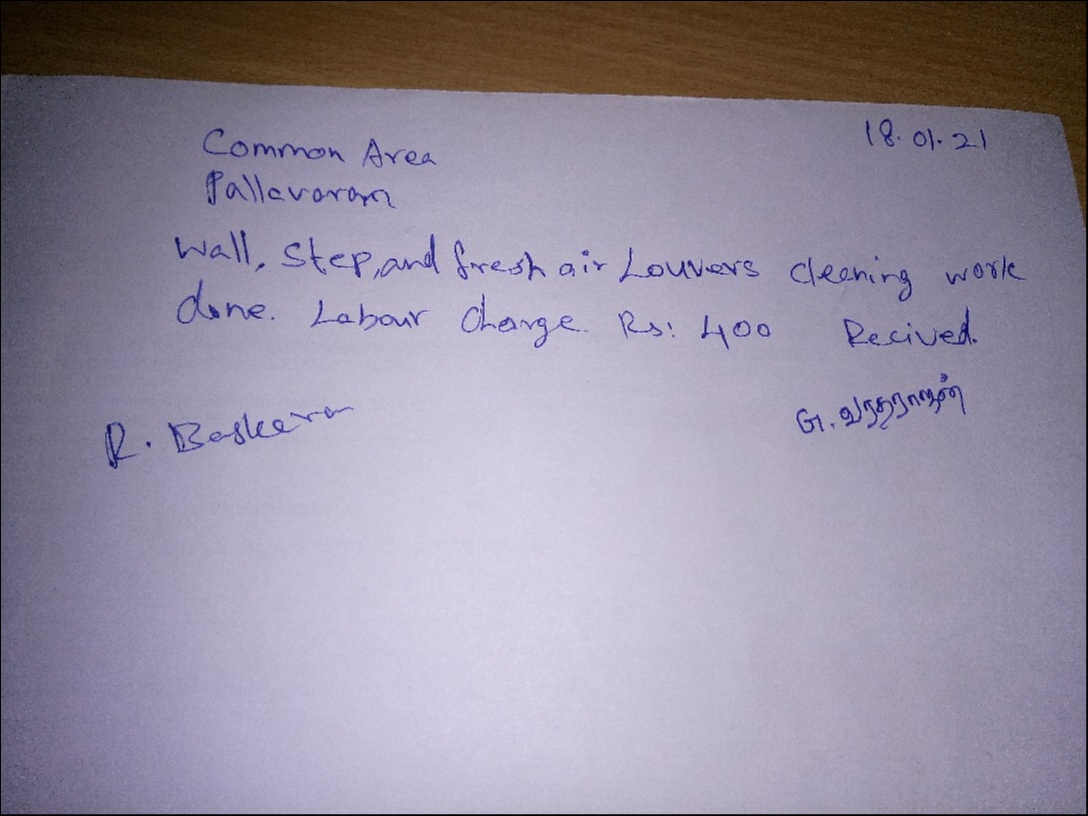 18.01.21
Common Area
Pallavaram
Wall, Step, and fresh air Louvers cleening work
done. Labour Charge. Rs: 400 Recived.
R. Baskaran
G. வரதராஜன்